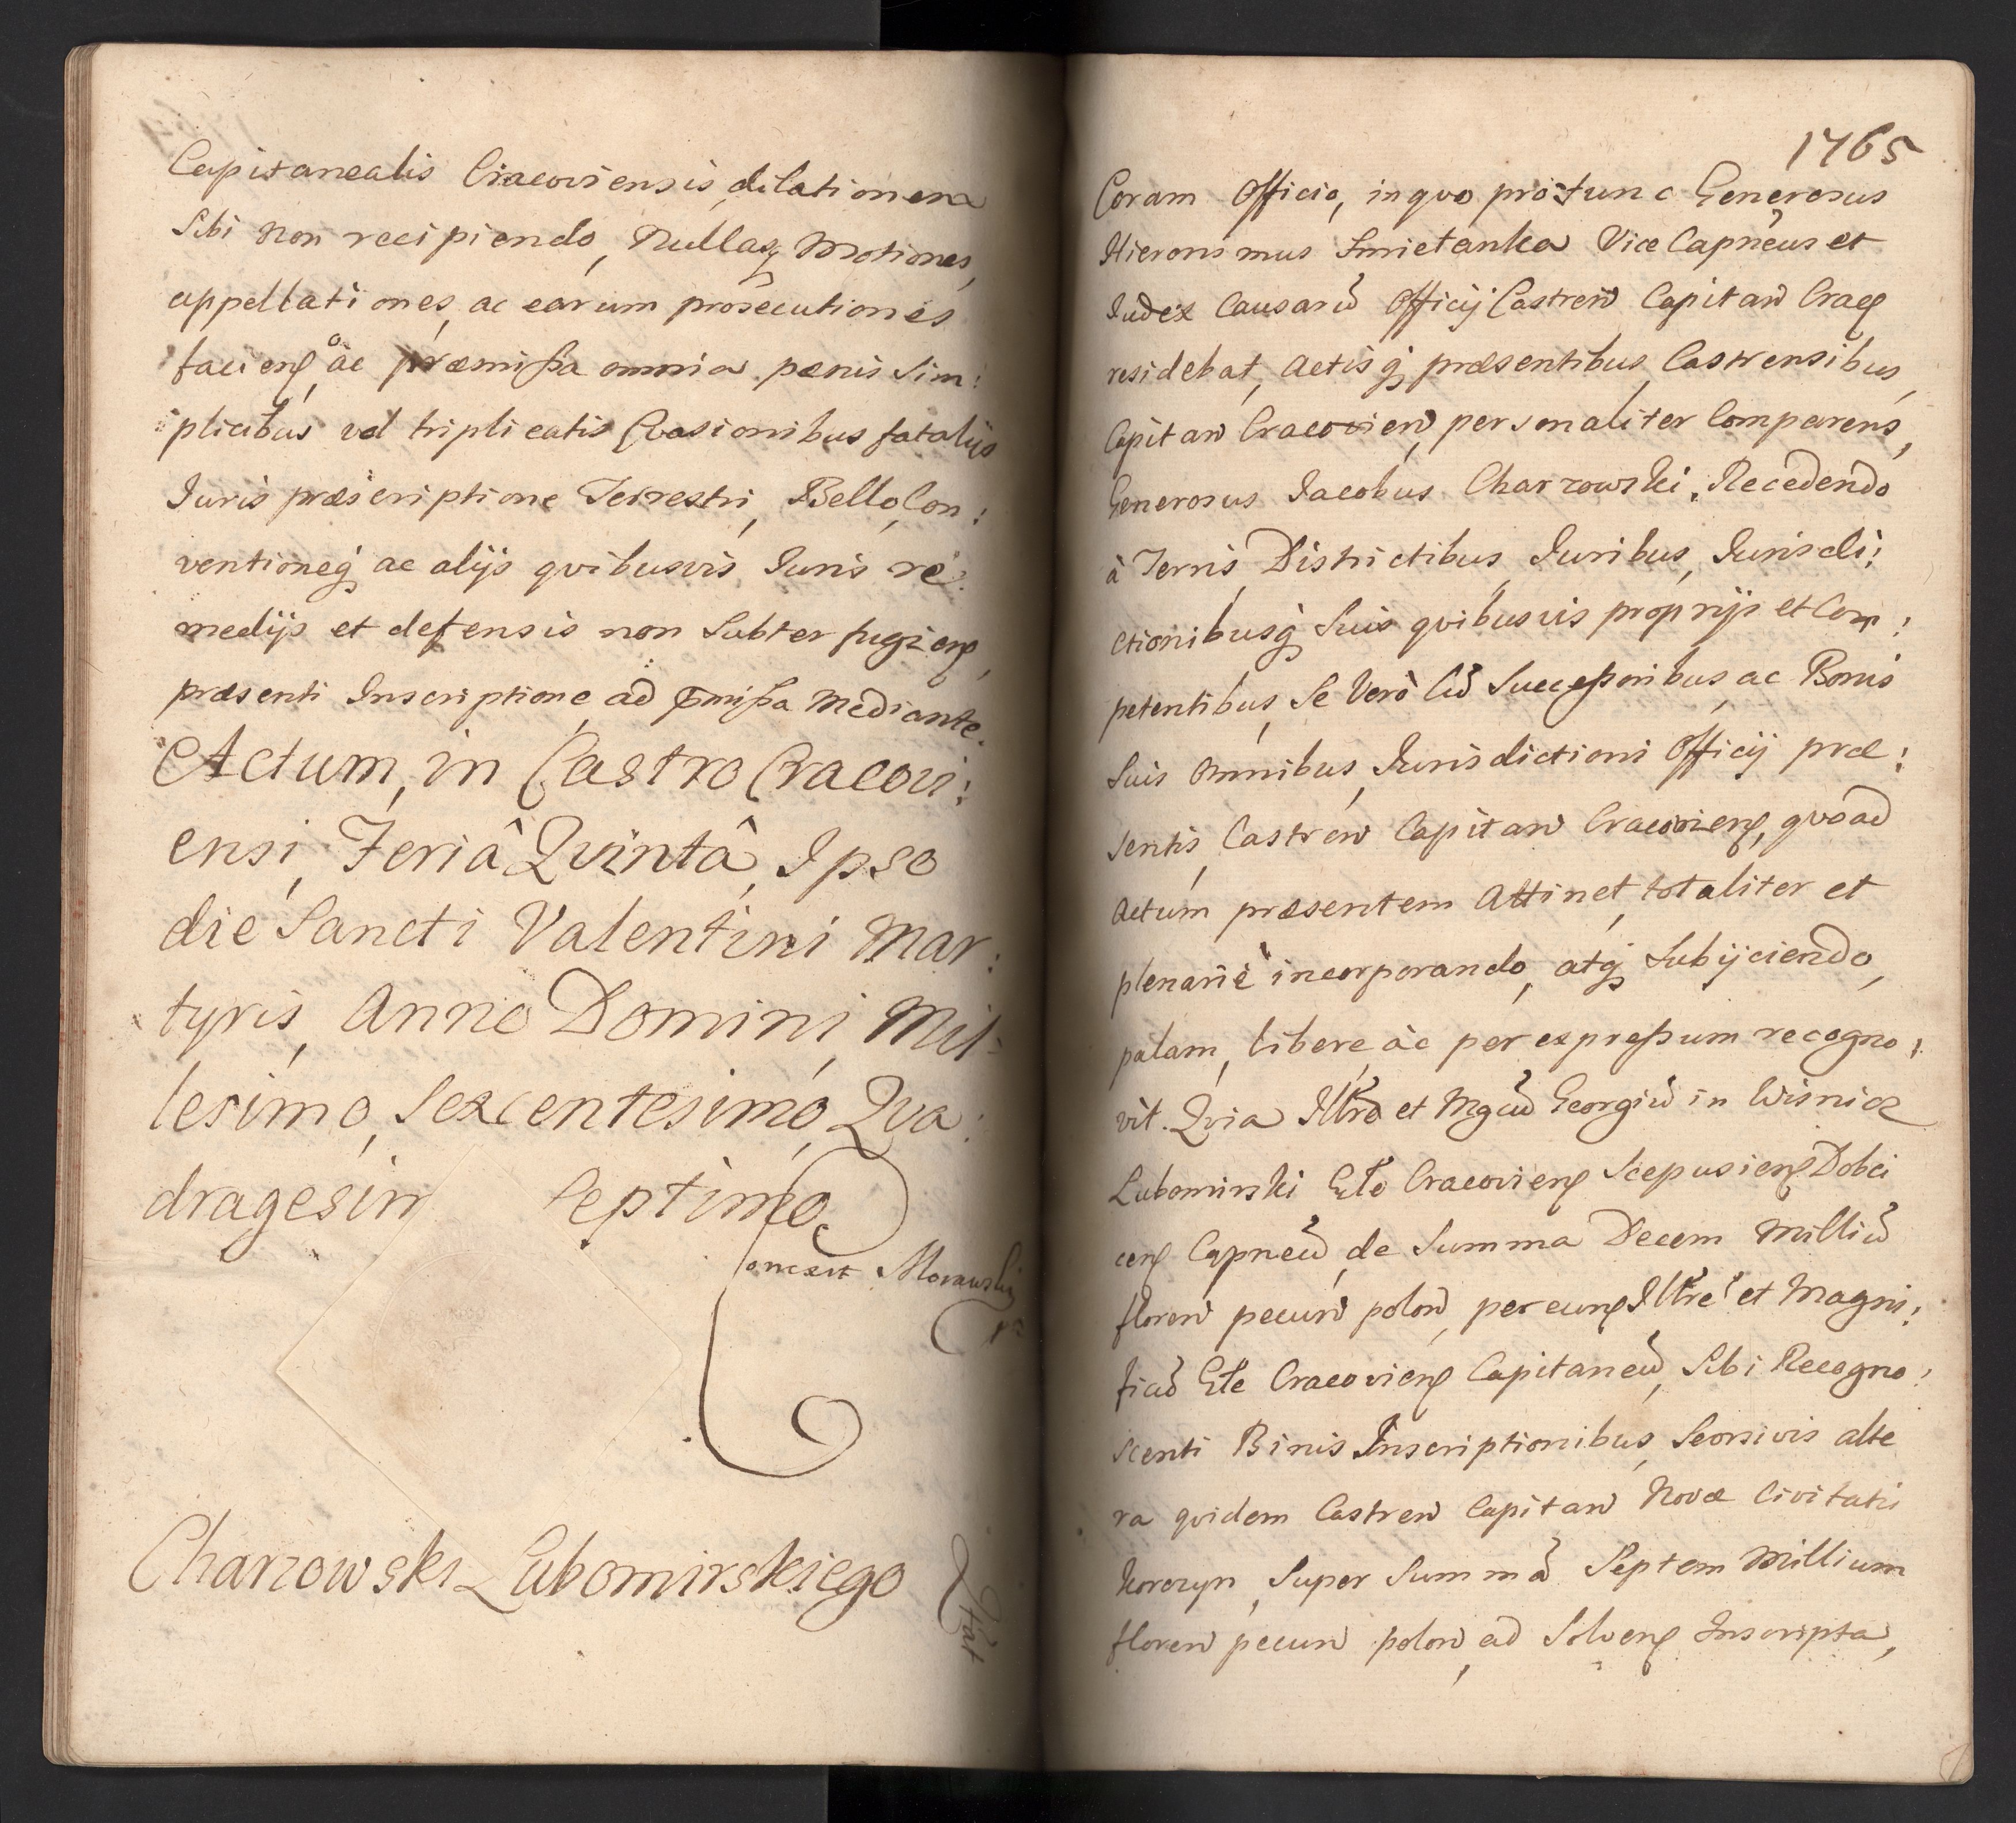 Capitanealis Cracoviensis, dilationem
Sibi non recipiendo, Nullasq Motiones,
appellationes, ac earum prosecutiones
faciend, ac præmissa omnia pænis Sim:
plicibus vel triplicatis Evasionibus fatalijs
Iuris præscriptione Terrestri, Bello, Con:
ventioneq ac alijs qvibusvis Iuris re:
medijs et defensis non Subter fugiend,
præsenti Inscriptione ad pmissa Mediante.
Actum, in Castro Cracovi:
ensi, Feriâ Qvintâ, Ipso
die Sancti Valentini Mar:
tyris, Anno Domini Mil:
lesimo, Sexcentesimo, Qva:
dragesim Septimo.
Charzowski Lubomirskiego
1765
Coram Officio, in qvo pro tunc Generosus
Hieronimus Smietanka Vice Capneus et
Iudex Causarũ Officij Castren Capitan Crac
residebat, Actisq præsentibus Castrensibus,
Capitan Cracovien, personaliter Comparens,
Generosus Iacobus Charzowski, Recedendo
à Terris, Districtibus, Iuribus, Iurisdi:
ctionibusq Suis qvibusvis proprijs et Com:
petentibus, Se Verò Cũ Successoribus, ac Bonis
Suis Omnibus, Iurisdictioni Officij præ:
sentis, Castren Capitan Cracovien, qvoad
Actum præsentem Attinet, totaliter et
plenariè incorporando, atq Subijciendo,
palam, libere ac per expressum recogno:
vit. Qvia Illrẽ et Mgcũ Georgiũ in Wisnicz
Lubomirski Ete Cracovien Scepusien Dobci
cen Capneũ, de Summa Decem Milliũ
floren pecun polon, per eund Illrẽ et Magni:
ficũ Ete Cracovien Capitaneũ, Sibi Recogno:
scenti Binis Inscriptionibus, Seorsivis alte
ra qvidem Castren Capitan Novæ Civitatis
Korczyn, Super Summã Septem Millium
floren pecun polon, ad Solven Inscripta,